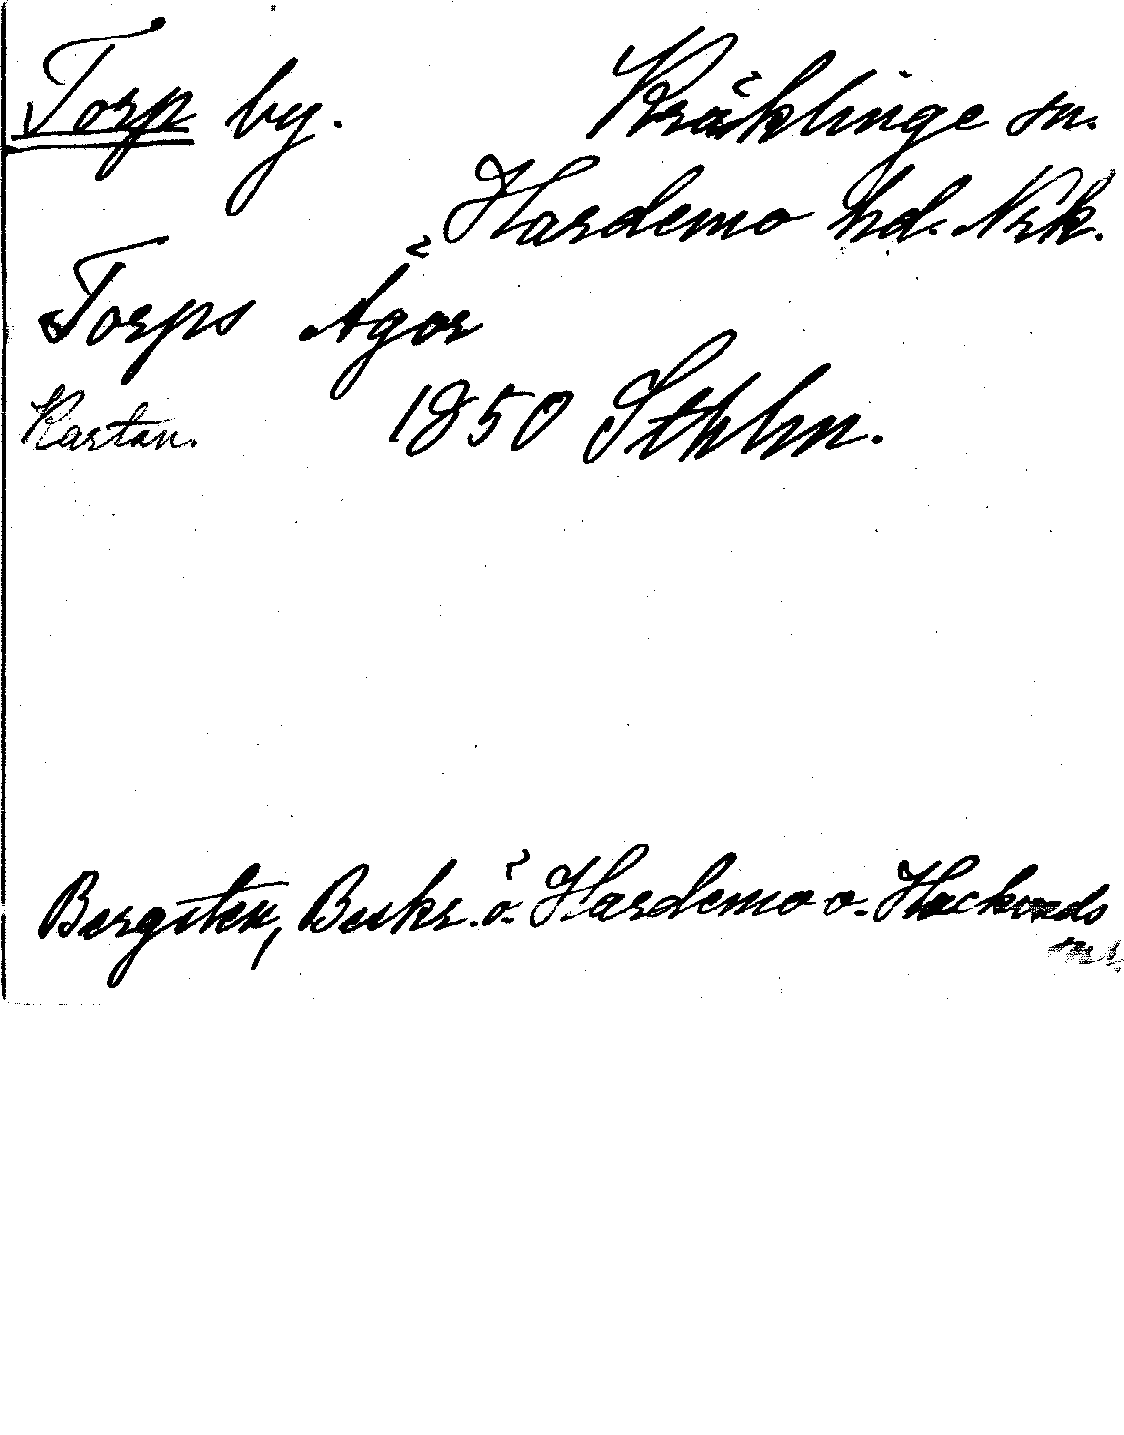 Torp by. Kräklinge sn.
Hardemo hd. Nrk.
Torps Ägor
Kartan. 1850 Sthlm.
Bergsten, Beskr. ö. Hardemo o. Hackvads
sn:r.